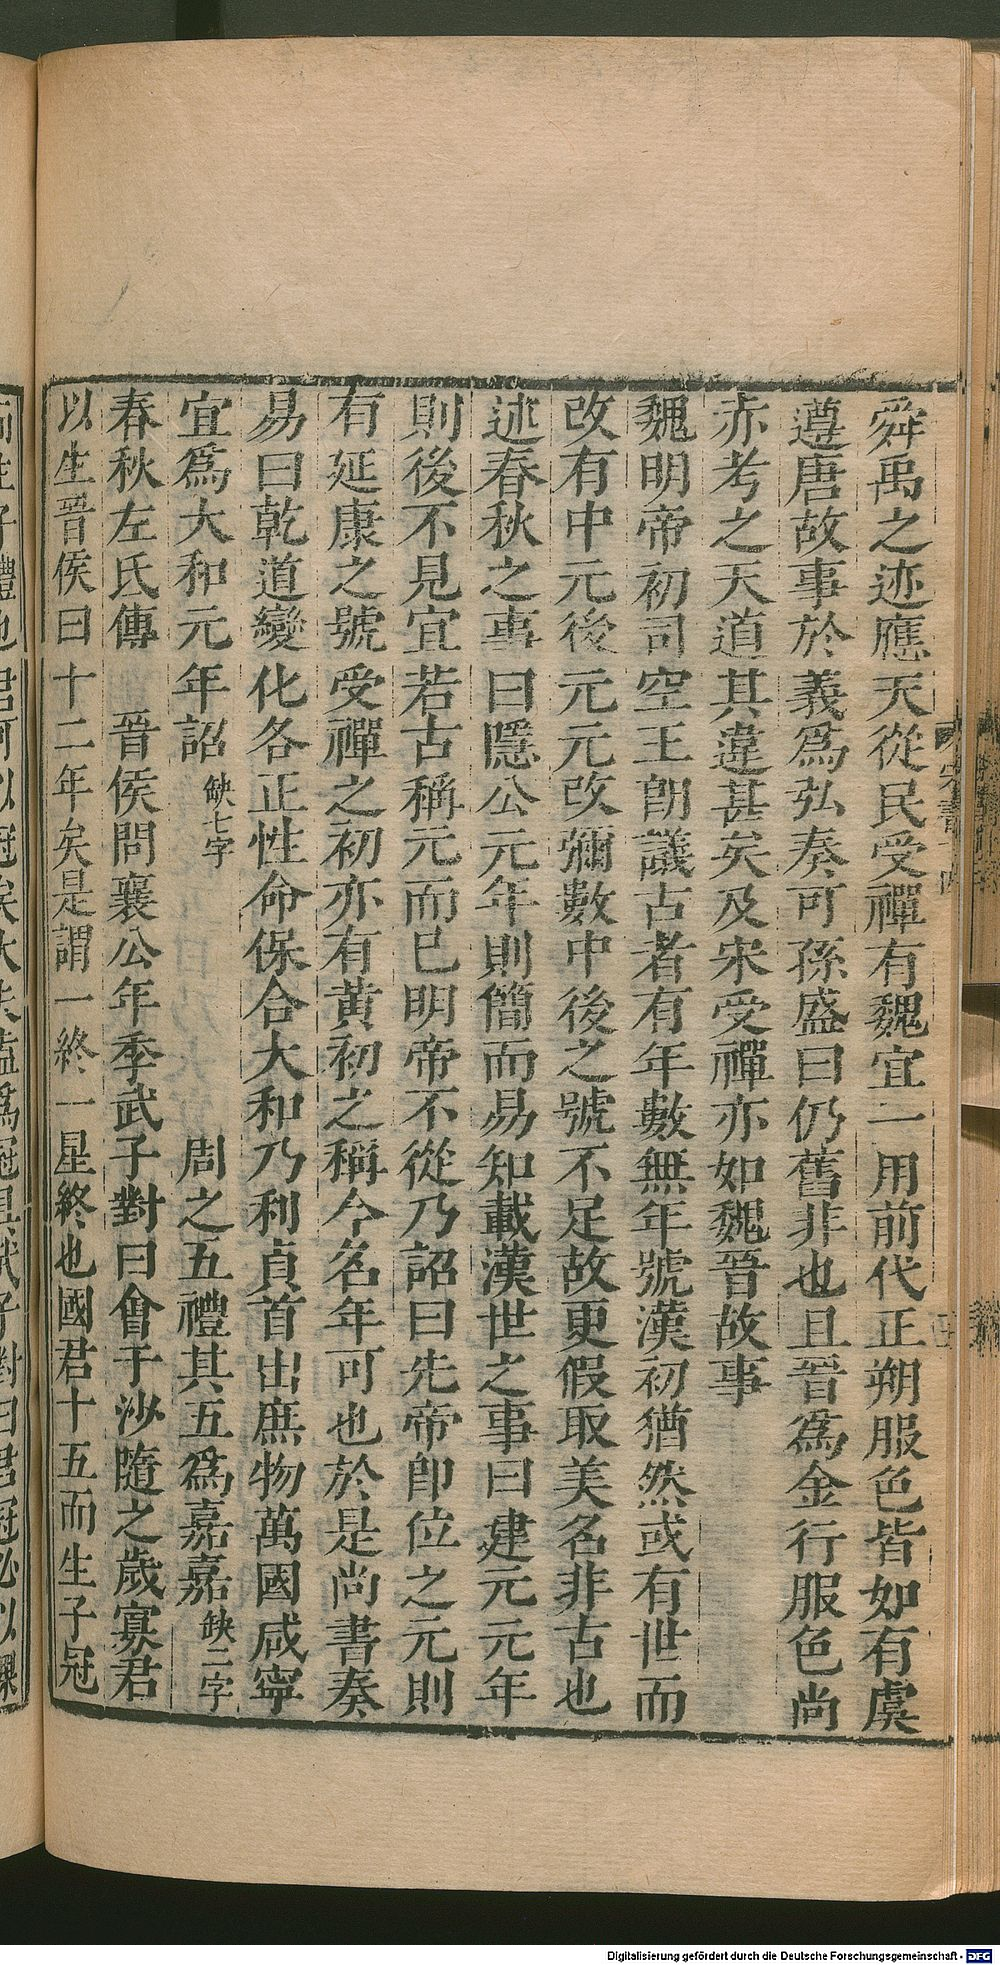 舜禹之迹應天從民受禪有魏宜一用前代正朔服色皆如有虞
遵唐故事於義爲弘奏可孫盛曰仍舊非也且晉爲金行服色尚
赤考之天道其違甚矣及宋受禪亦如魏晉故事
魏明帝初司空王朗議古者有年數無年號漢初猶然或有世而
改有中元後元元改彌數中後之號不足故更假取美名非古也
述春秋之事曰隱公元年則簡而易知載漢世之事曰建元元年
則後不見宜若古稱元而已明帝不從乃詔曰先帝卽位之元則
有延康之號受禪之初亦有黃初之稱今名年可也於是尚書奏
易曰乾道變化各正性命保合大和乃利貞首出庶物萬國咸寧
宜爲大和元年詔缺七字周之五禮其五爲嘉嘉缺二字
春秋左氏傳 晉侯問襄公年季武子對曰會于沙隨之歲寡君
以生晉侯曰十二年矣是謂一終一星終也國君十五而生子冠
Digitalisierung gefördert durch die Deutsche Forschungsgemeinschaft - DFG